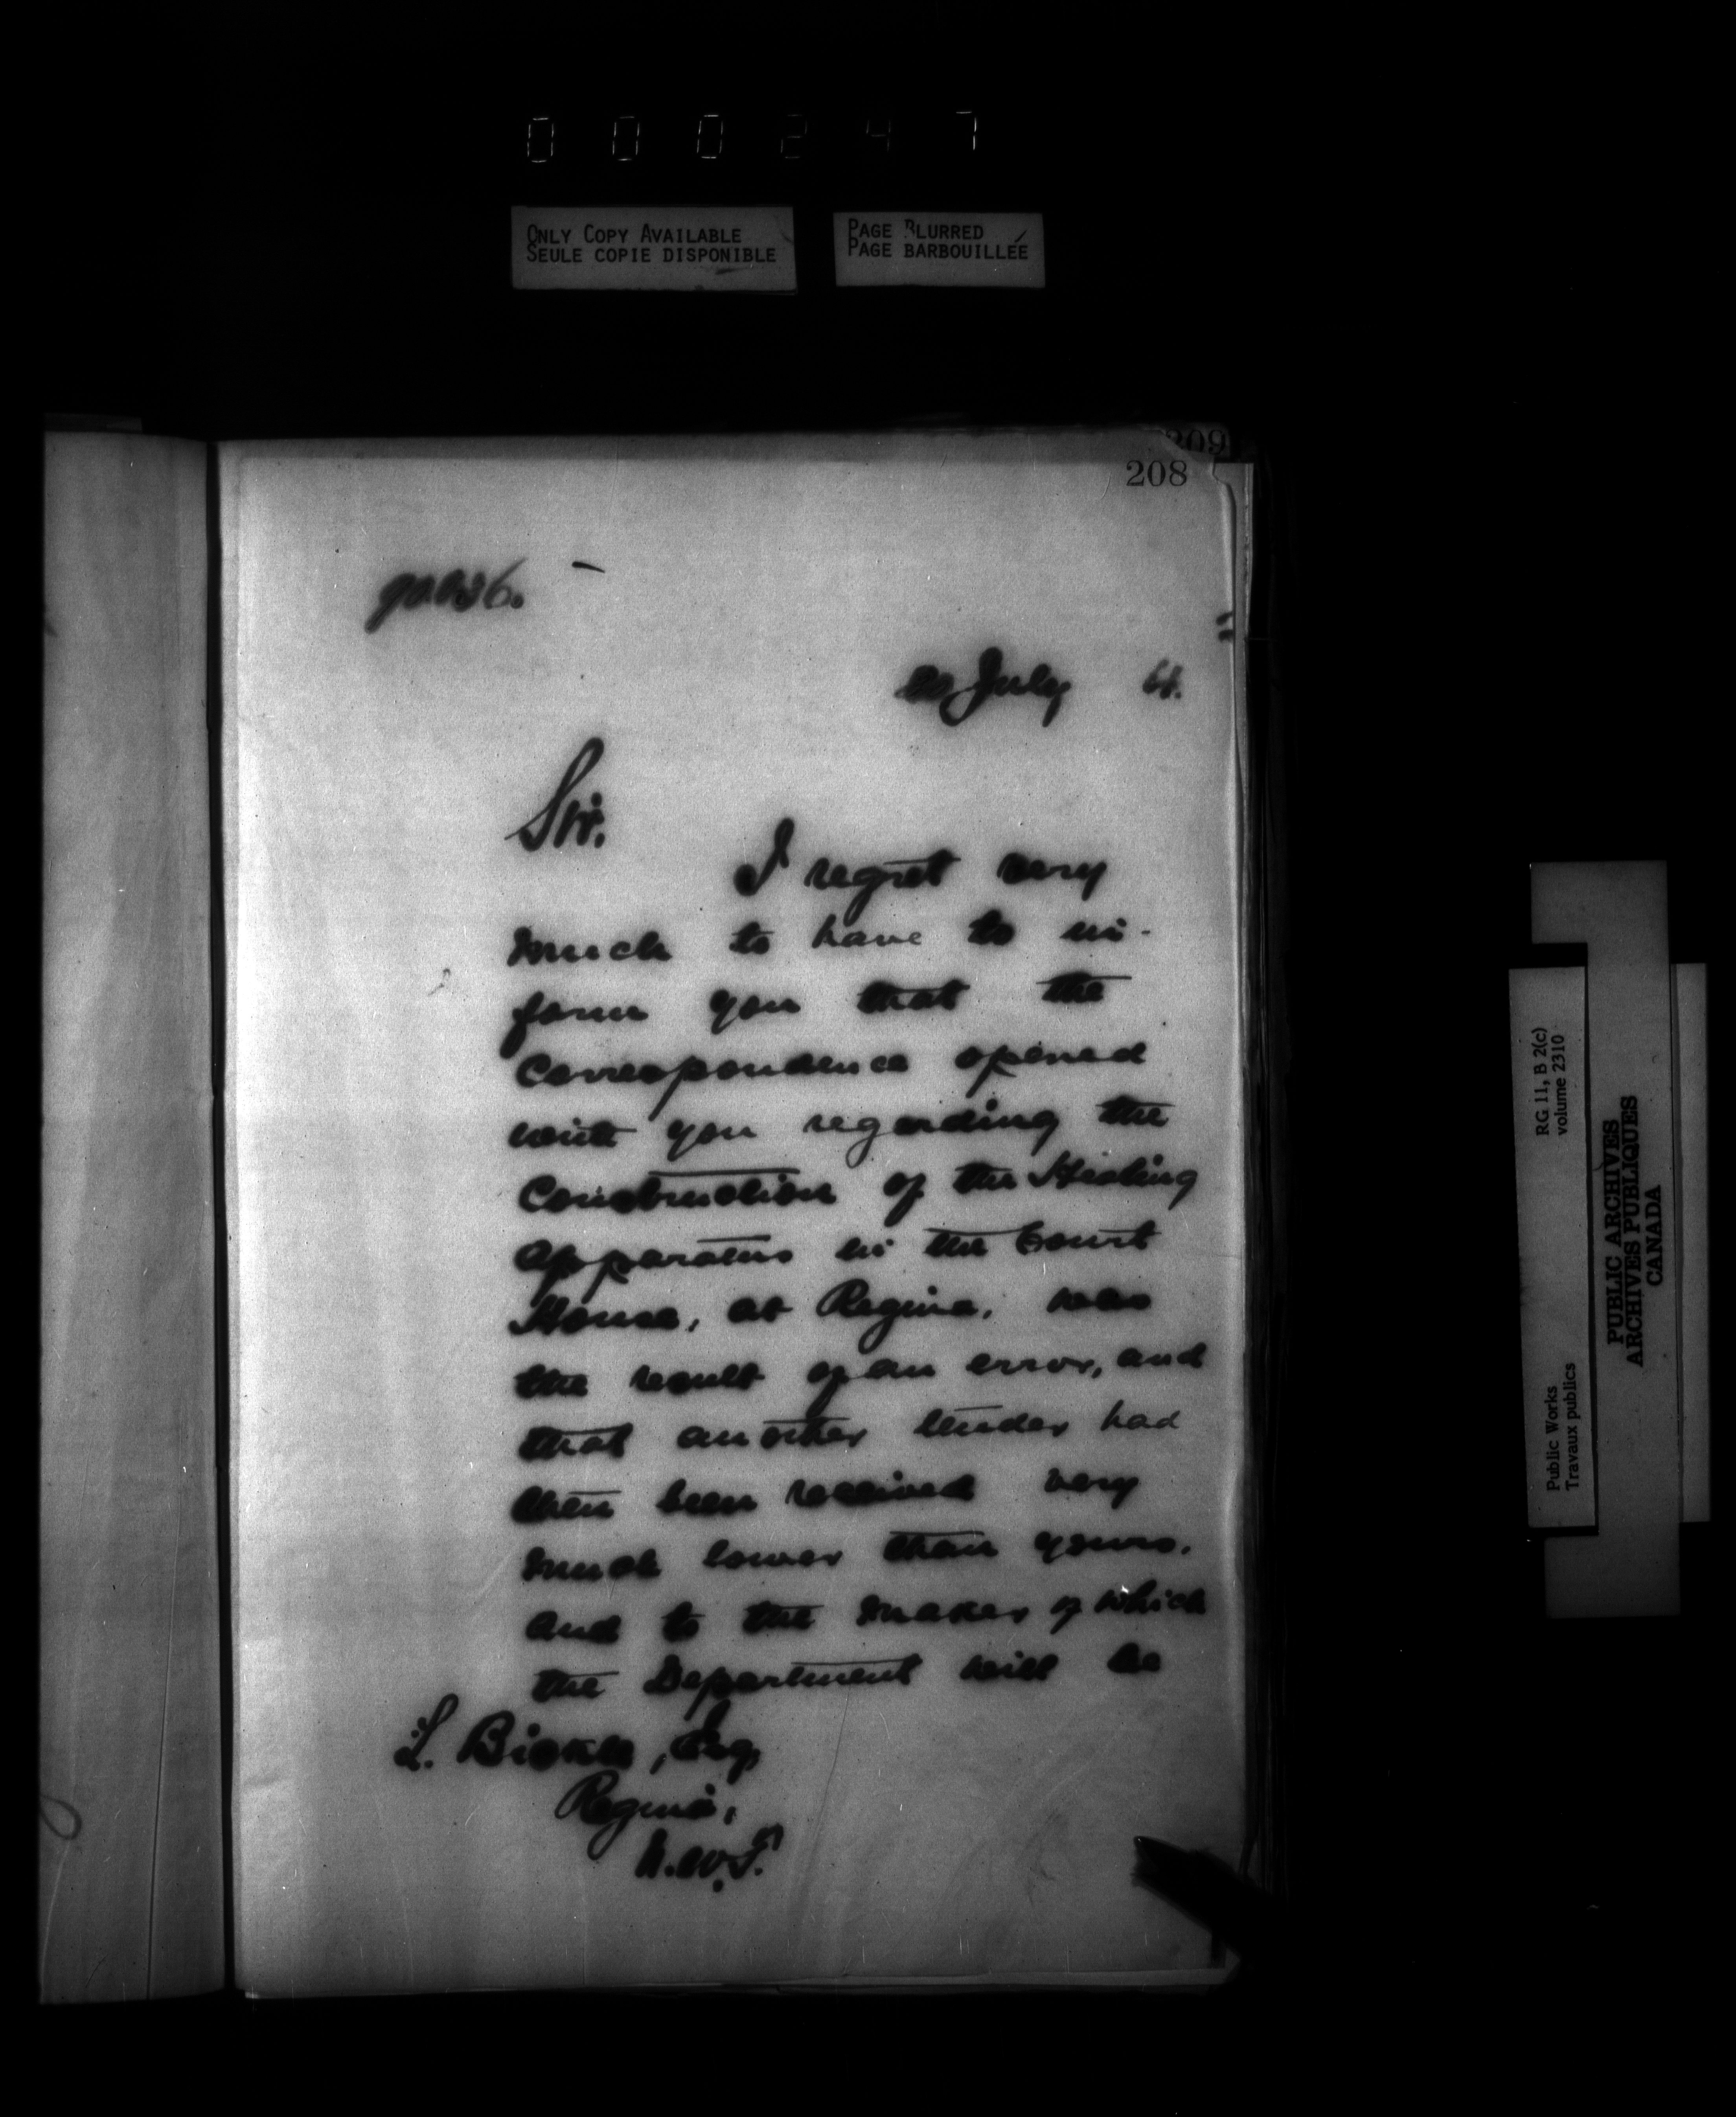 000247
ONLY COPY AVAILABLE
SEULE COPIE DISPONIBLE
PAGE BLURRED
PAGE BARBOUILLÉE
209
208
July
Sir.
I regret very
much to have to in-
form you that the
Correspondence opened
with you regarding the
Construction of the Heating
Apparatus in the Court
House, at Regina, was
the result of an error, and
that another tender had
then been received very
much lower than yours,
and to the maker of which
the Department will be
Esq
Regina,
N.W.T.
RG 11, B 2(c)
volume 2310
Public Works
Travaux publics
PUBLIC ARCHIVES
ARCHIVES PUBLIQUES
CANADA